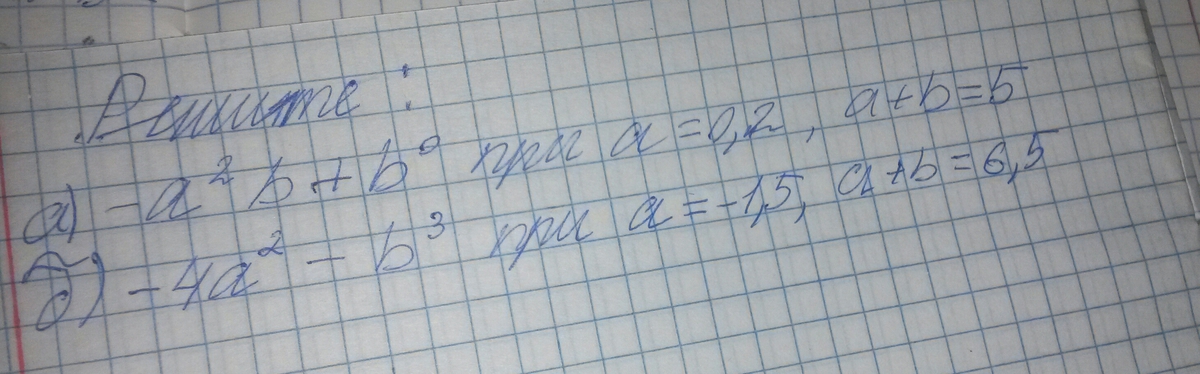 Решите:
а) -a² b + b⁰ при a = 0,2, a+b=5
б) -4a² - b³ при a = -1,5, a+b=6,5